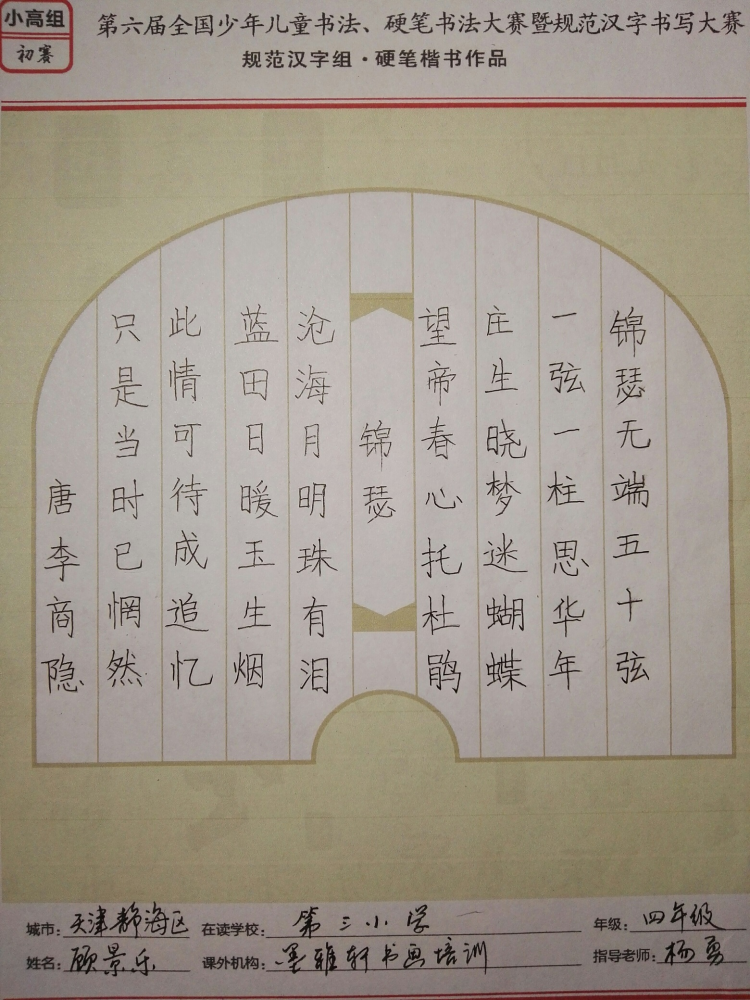 小高组
初赛
第六届全国少年儿童书法、硬笔书法大赛暨规范汉字书写大赛
规范汉字组·硬笔楷书作品
锦瑟无端五十弦
一弦一柱思华年
庄生晓梦迷蝴蝶
望帝春心托杜鹃
锦瑟
沧海月明珠有泪
蓝田日暖玉生烟
此情可待成追忆
只是当时已惘然
唐李商隐
城市：天津静海区 在读学校：第三小学 年级：四年级
姓名：顾景乐 课外机构：墨雅轩书画培训 指导老师：杨勇